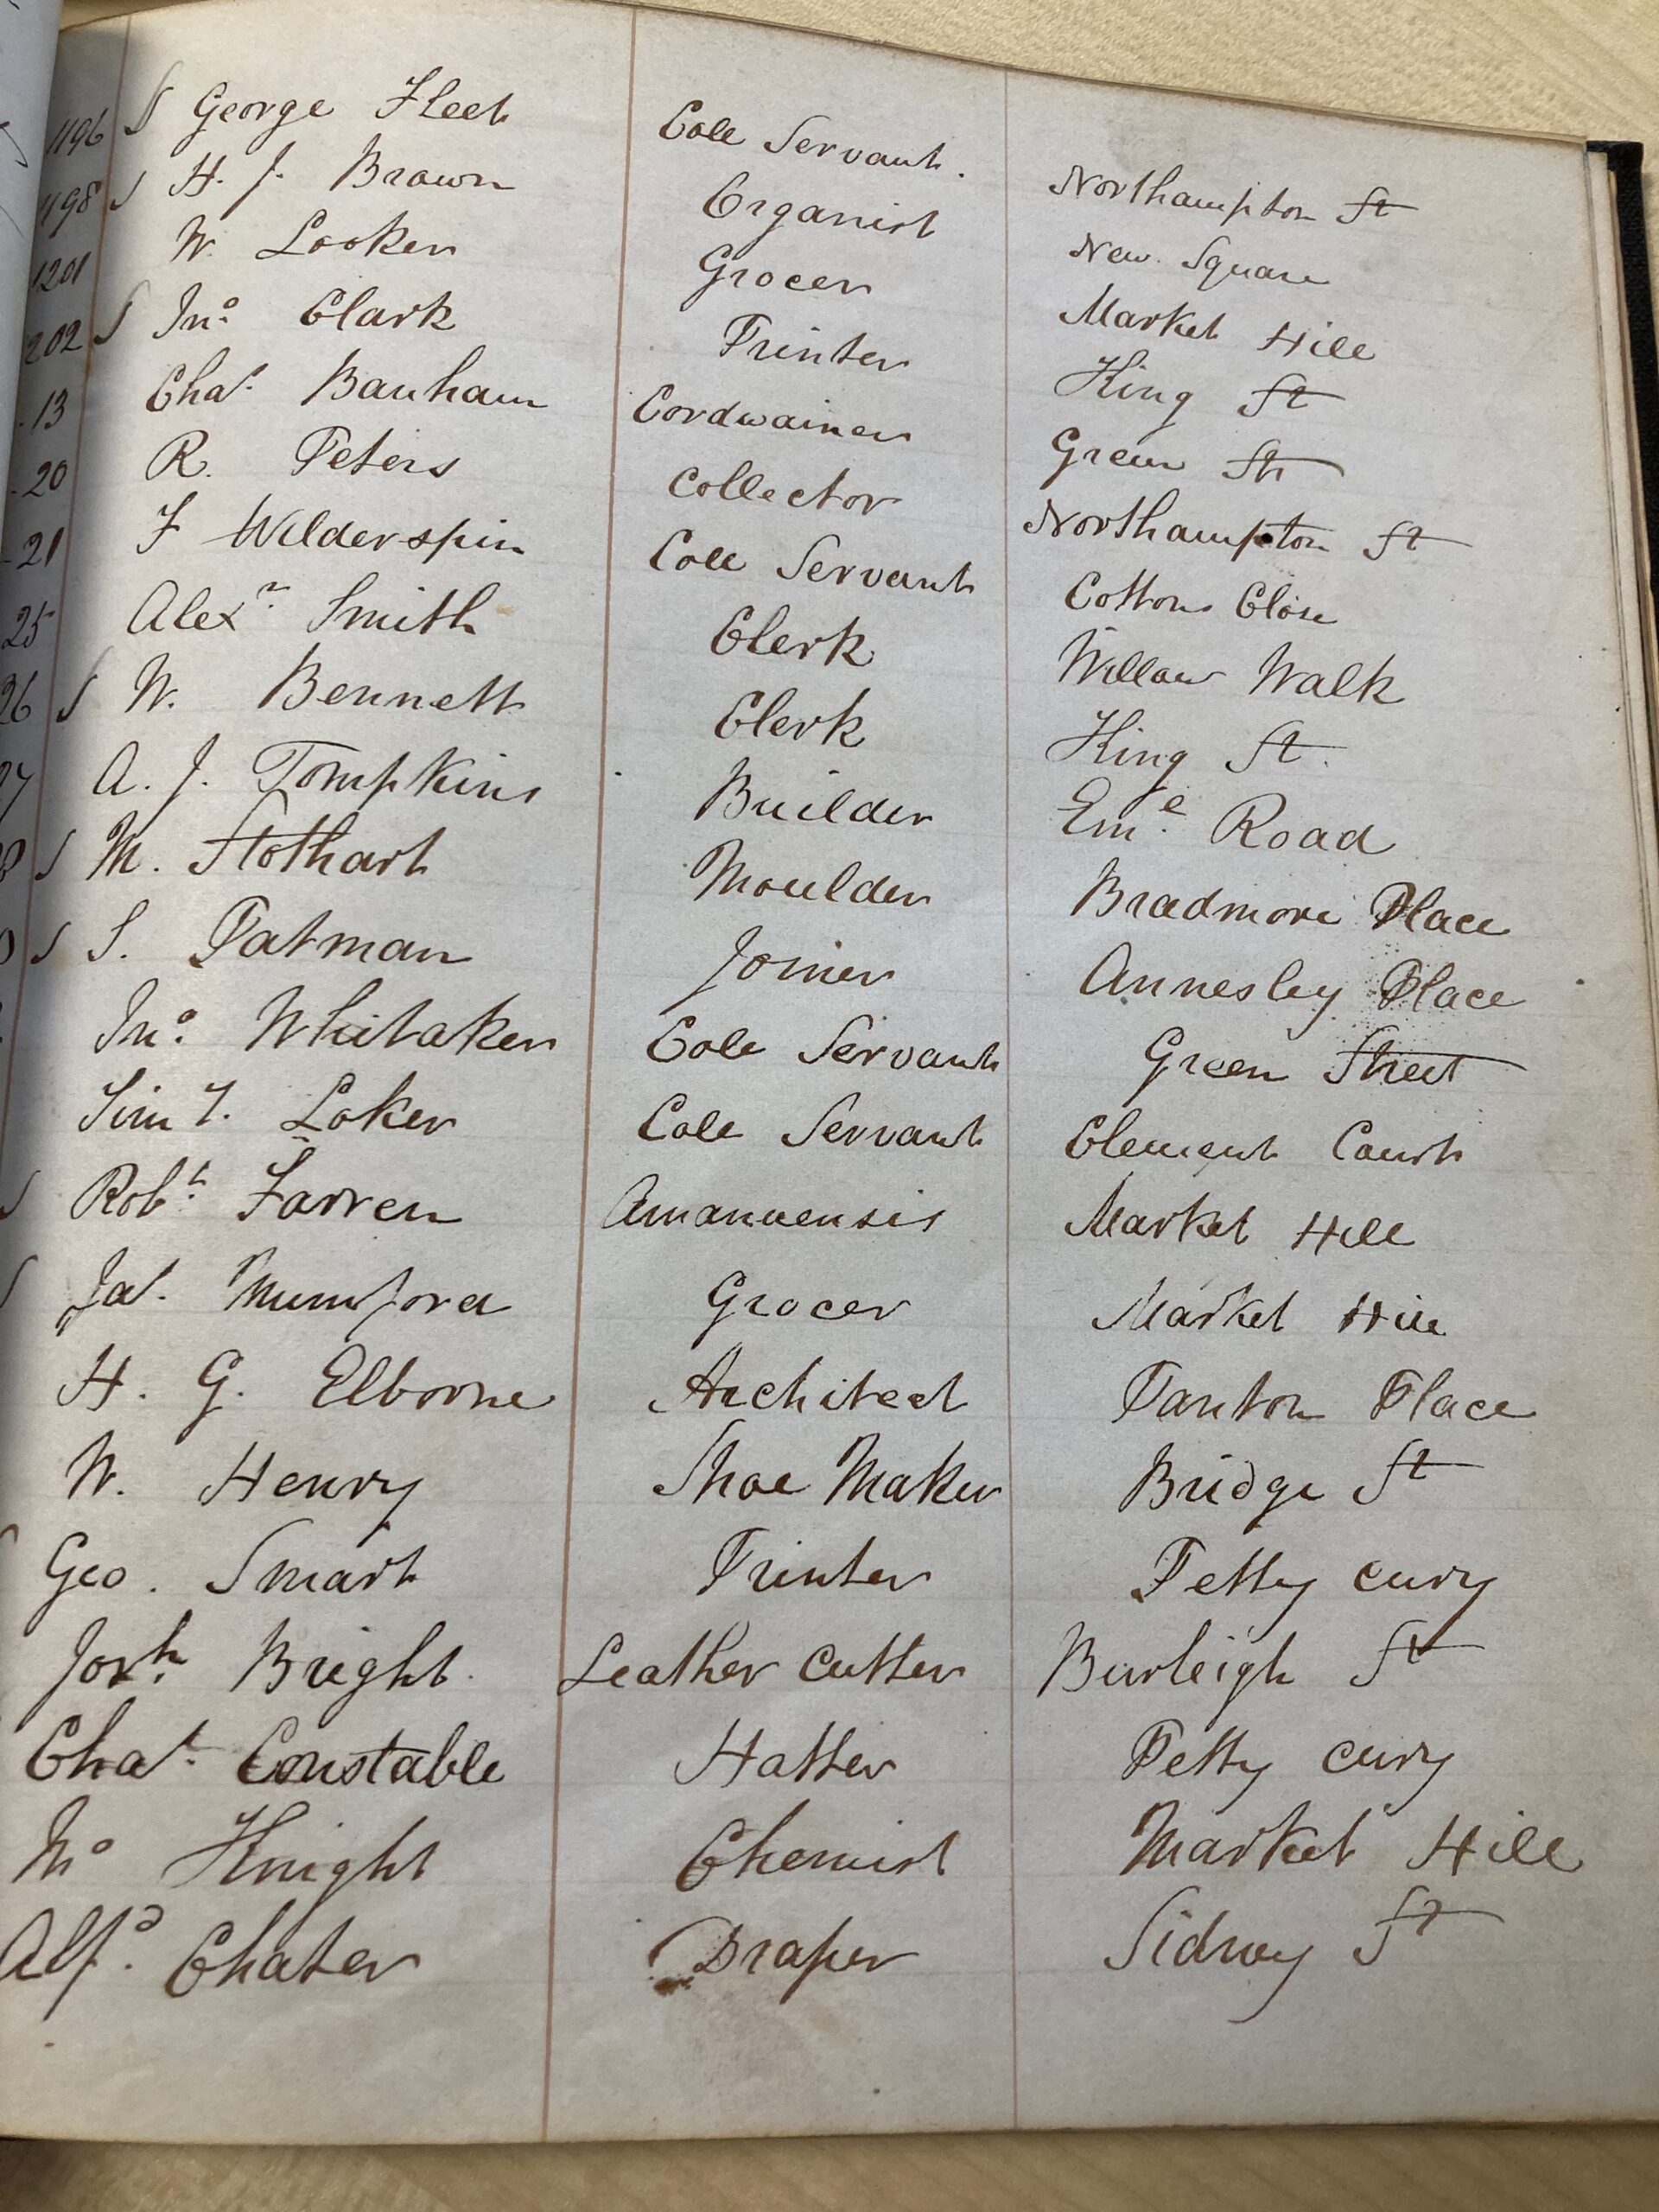 1196 S George Fleet Coll Servant. Northampton St
1198 S H. J. Brown Organist New Square
1201 W. Looker Grocer Market Hill
202 S Jno. Clark Printer King St
13 Chas. Banham Cordwainer Green St
20 R. Peters Collector Northampton St
21 F Wilderspin Coll Servant Cottons Close
25 Alexr. Smith Clerk Willow Walk
26 S W. Bennett Clerk King St.
27 A. J. Tompkins Builder Eme. Road
8 S M. Stothart Moulder Bradmore Place
0 S S. Patman Joiner Annesley Place
Jno. Whitaker Coll Servant Green Street
Loker Coll Servant Clement Court
S Robt. Farren Amanuensis Market Hill
S Jas. Mumford Grocer Market Hill
H. G. Elborne Architect Panton Place
W. Henry Shoe Maker Bridge St
Geo. Smart Printer Petty cury
Josh. Bright. Leather Cutter Burleigh St
Chas. Constable Hatter Petty cury
Knight Chemist Market Hill
Alfd. Chater Draper Sidney St